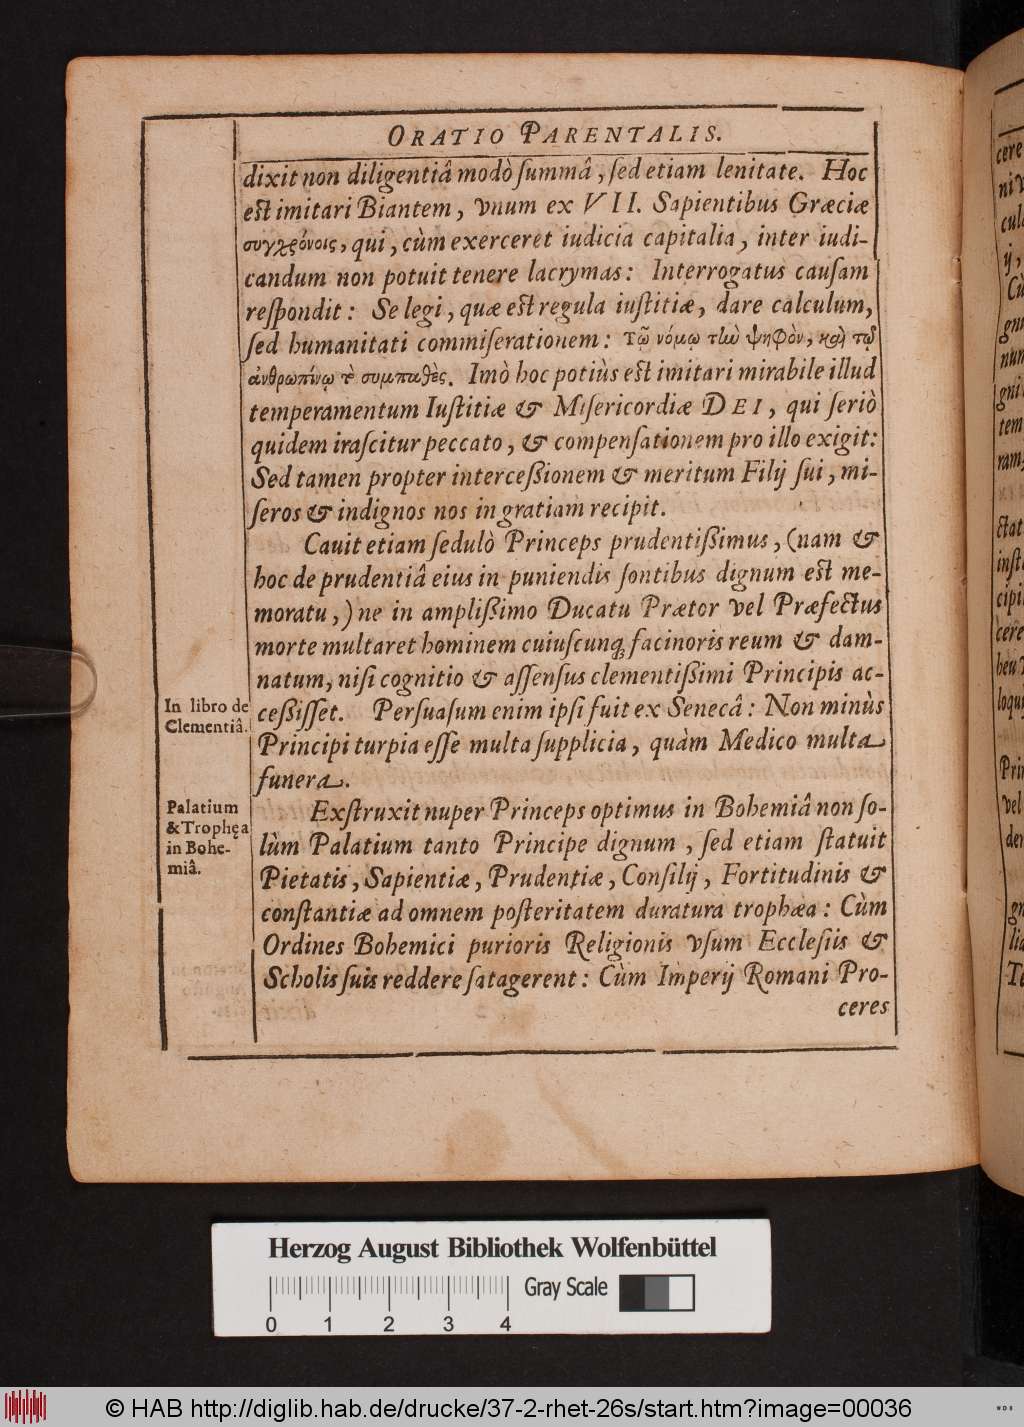 ORATIO PARENTALIS.
dixit non diligentiâ modò ſummâ, ſed etiam lenitate. Hoc
eſt imitari Biantem, vnum ex VII. Sapientibus Græciæ
συγχρόνοις, qui, cùm exerceret iudicia capitalia, inter iudi-
candum non potuit tenere lacrymas: Interrogatus cauſam
reſpondit: Se legi, quæ eſt regula iuſtitiæ, dare calculum,
ſed humanitati commiſerationem: Τῷ νόμῳ τὴν ψηφὸν, καὶ τῷ
ἀνθρωπίνῳ τὸ συμπαθὲς. Imò hoc potiùs eſt imitari mirabile illud
temperamentum Iuſtitiæ & Miſericordiæ DEI, qui ſeriò
quidem iraſcitur peccato, & compenſationem pro illo exigit:
Sed tamen propter interceßionem & meritum Filij ſui, mi-
ſeros & indignos nos in gratiam recipit.
Cauit etiam ſedulò Princeps prudentißimus, (nam &
hoc de prudentiâ eius in puniendis ſontibus dignum eſt me-
moratu,) ne in amplißimo Ducatu Prætor vel Præfectus
morte multaret hominem cuiuſcunq; facinoris reum & dam-
natum, niſi cognitio & aſſenſus clementißimi Principis ac-
In libro de
Clementiâ.
ceßiſſet. Perſuaſum enim ipſi fuit ex Senecâ: Non minùs
Principi turpia eſſe multa ſupplicia, quàm Medico multa
funera.
Palatium
& Trophęa
in Bohe-
miâ.
Exſtruxit nuper Princeps optimus in Bohemiâ non ſo-
lùm Palatium tanto Principe dignum, ſed etiam ſtatuit
Pietatis, Sapientiæ, Prudentiæ, Conſilij, Fortitudinis &
conſtantiæ ad omnem poſteritatem duratura trophæa: Cùm
Ordines Bohemici purioris Religionis vſum Eccleſiis &
Scholis ſuis reddere ſatagerent: Cùm Imperij Romani Pro-
ceres
Herzog August Bibliothek Wolfenbüttel
Gray Scale
0 1 2 3 4
© HAB http://diglib.hab.de/drucke/37-2-rhet-26s/start.htm?image=00036